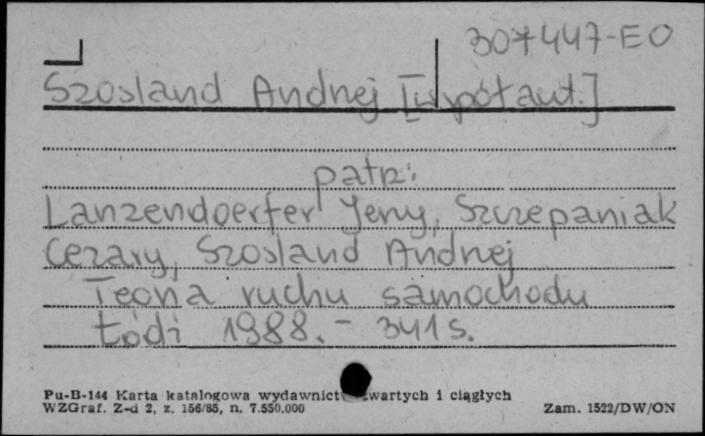 307447-EO
Szosland Andrzej [współaut.]
patrz:
Lanzendoerfer Jerzy, Szczepaniak
Cezary, Szosland Andrzej
Teoria ruchu samochodu
Łódź 1988. - 341 s.
Pu-B-144 Karta katalogowa wydawnict zwartych i ciągłych
WZGraf. Z-d 2, z. 156/85, n. 7.550.000
Zam. 1522/DW/ON